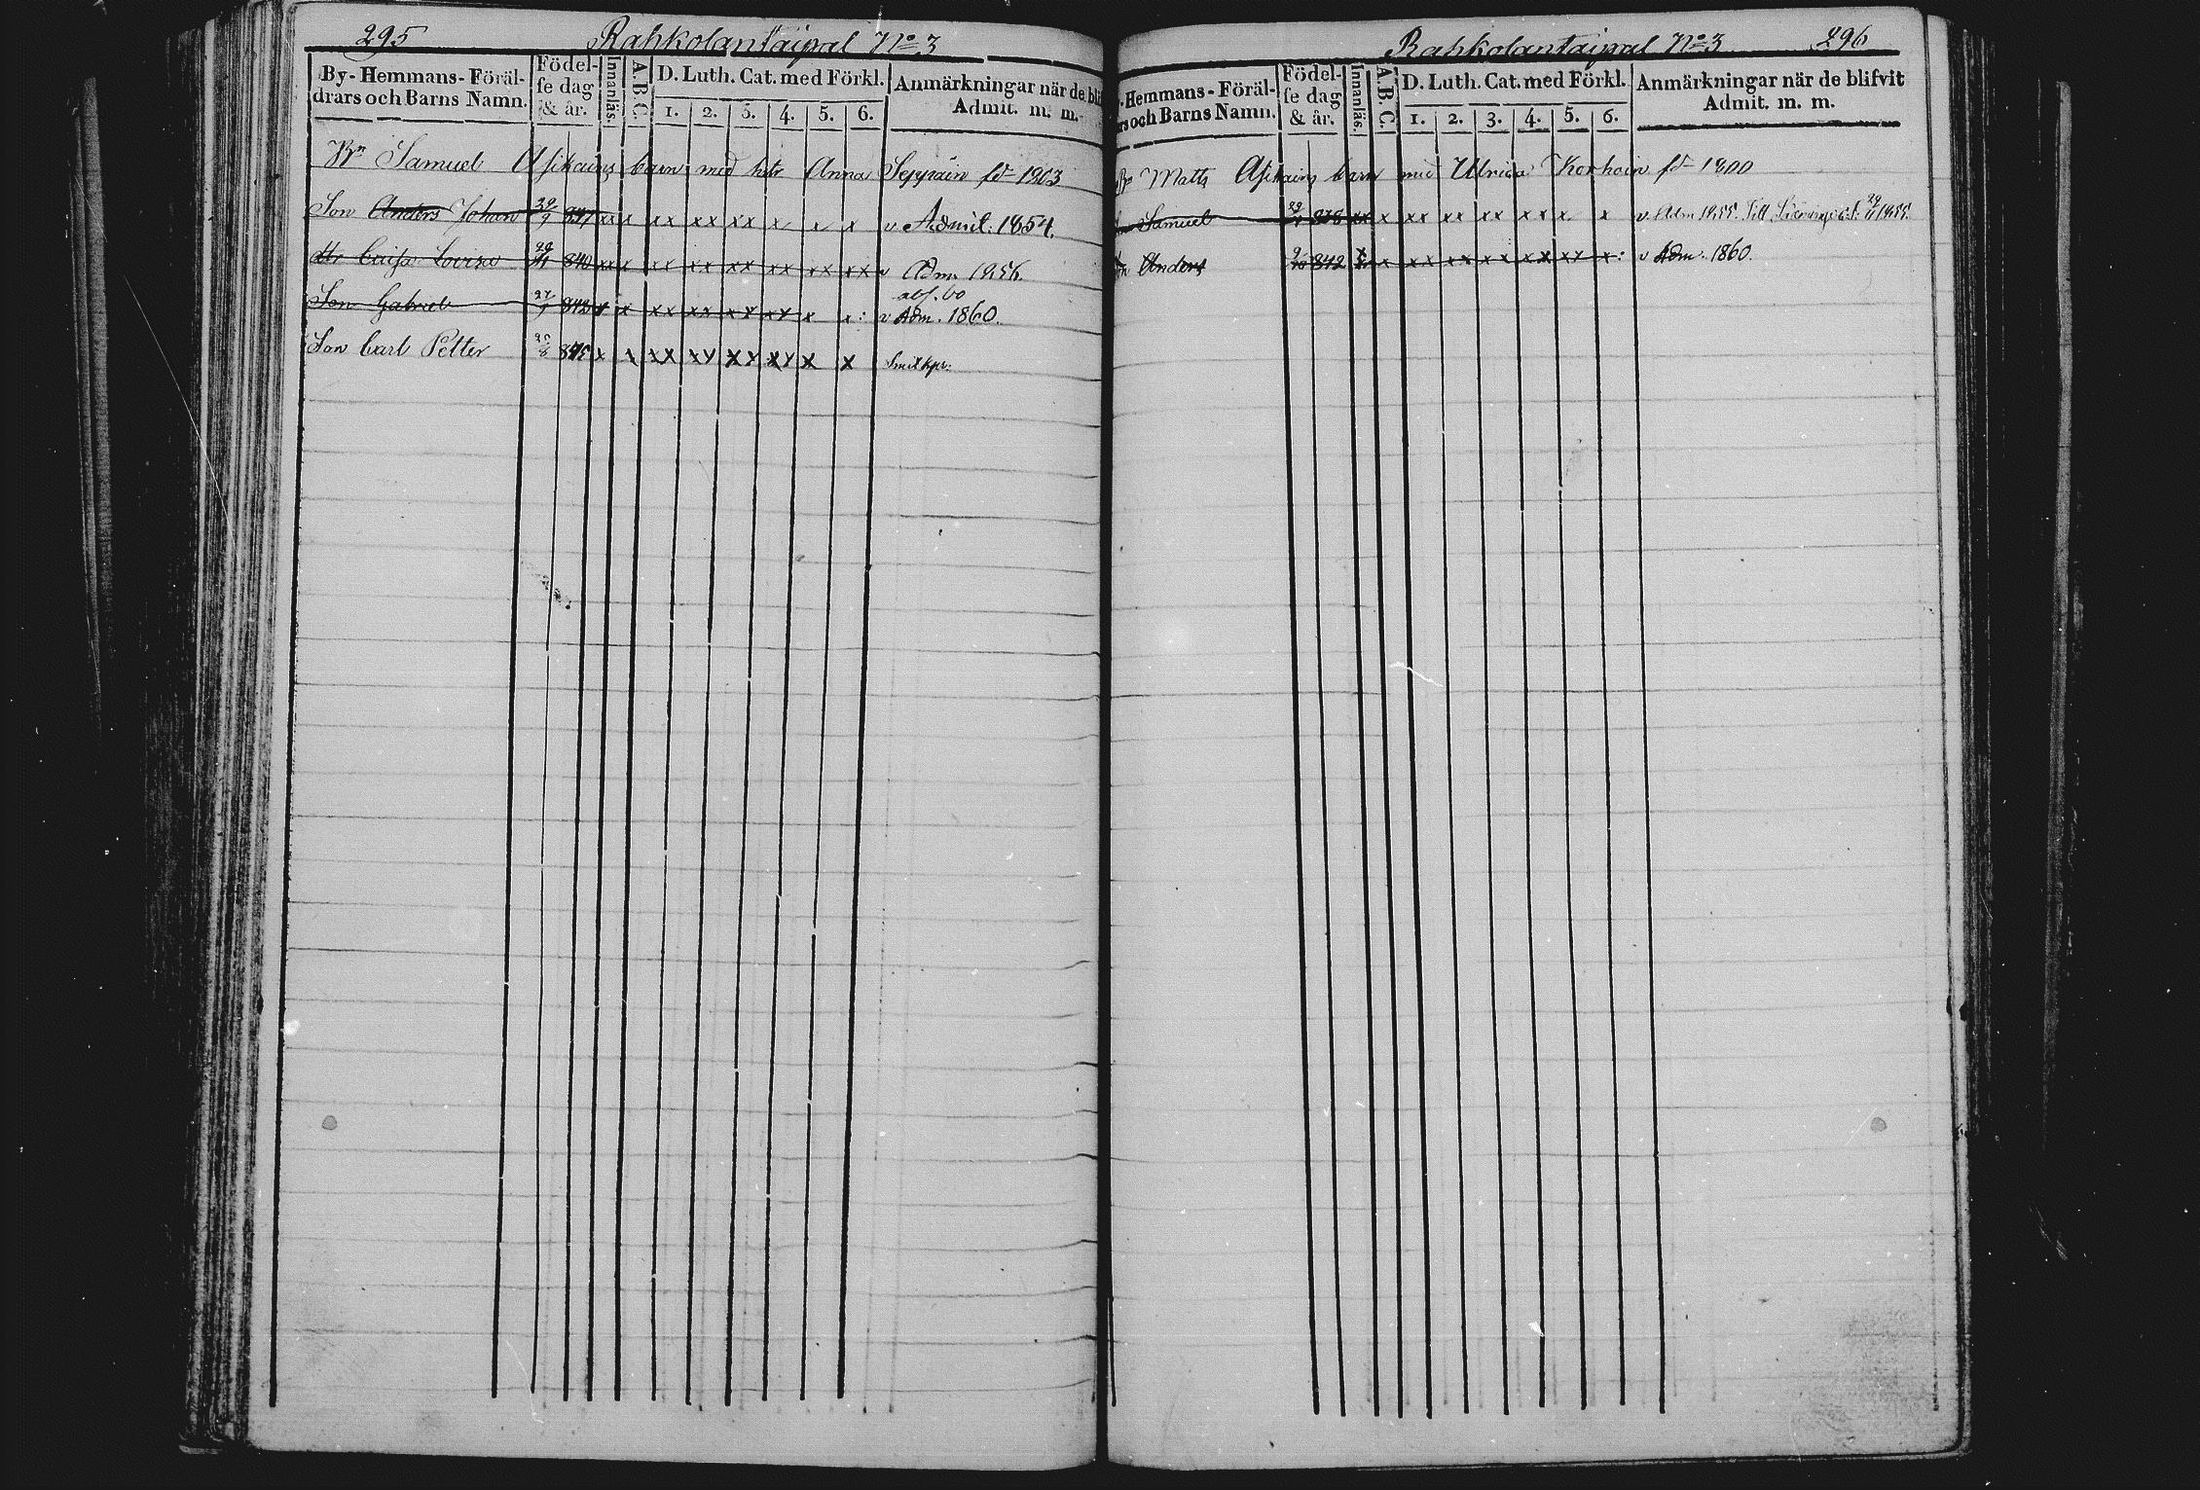 295 Rahkolantaipal No 3
By- Hemmans- Föräl-
drars och Barns Namn.
Födel-
se dag
& år.
Innanläs.
A. B. C.
D. Luth. Cat. med Förkl.
1. 2. 3. 4. 5. 6.
Anmärkningar när de bli
Admit. m. m.
Bn Samuel Asikains barn med hstr Anna Seppäin fd 1803
Son Anders Johan 29/9 837 xx x xx xx xx x x x v Admit. 1854.
dtr Caisa Lovisa 840 xx x xx xx xx xx xx xx v Adm. 1856.
abs. 60
Son Gabriel 843 x x xx xx xx xx x x: v Adm. 1860.
Son Carl Petter 845 x x xx xx xx xx x x
Rahkolantaipal No 3 296
Hemmans- Föräl-
rs och Barns Namn.
Födel-
se dag
& år.
Innanläs.
A. B. C.
D. Luth. Cat. med Förkl.
1. 2. 3. 4. 5. 6.
Anmärkningar när de blifvit
Admit. m. m.
Bn Matts Asikains barn med Ulrica Korhoin fd 1800
Samuel 838 xx x xx xx xx xx x x v. Adm 1855. Till
Anders 842 x x xx xx xx xx xx x: v Adm. 1860.